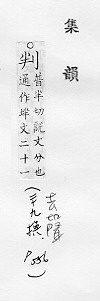 集韻
○判
普半切說文分也
通作牉文二十一
九換
P556